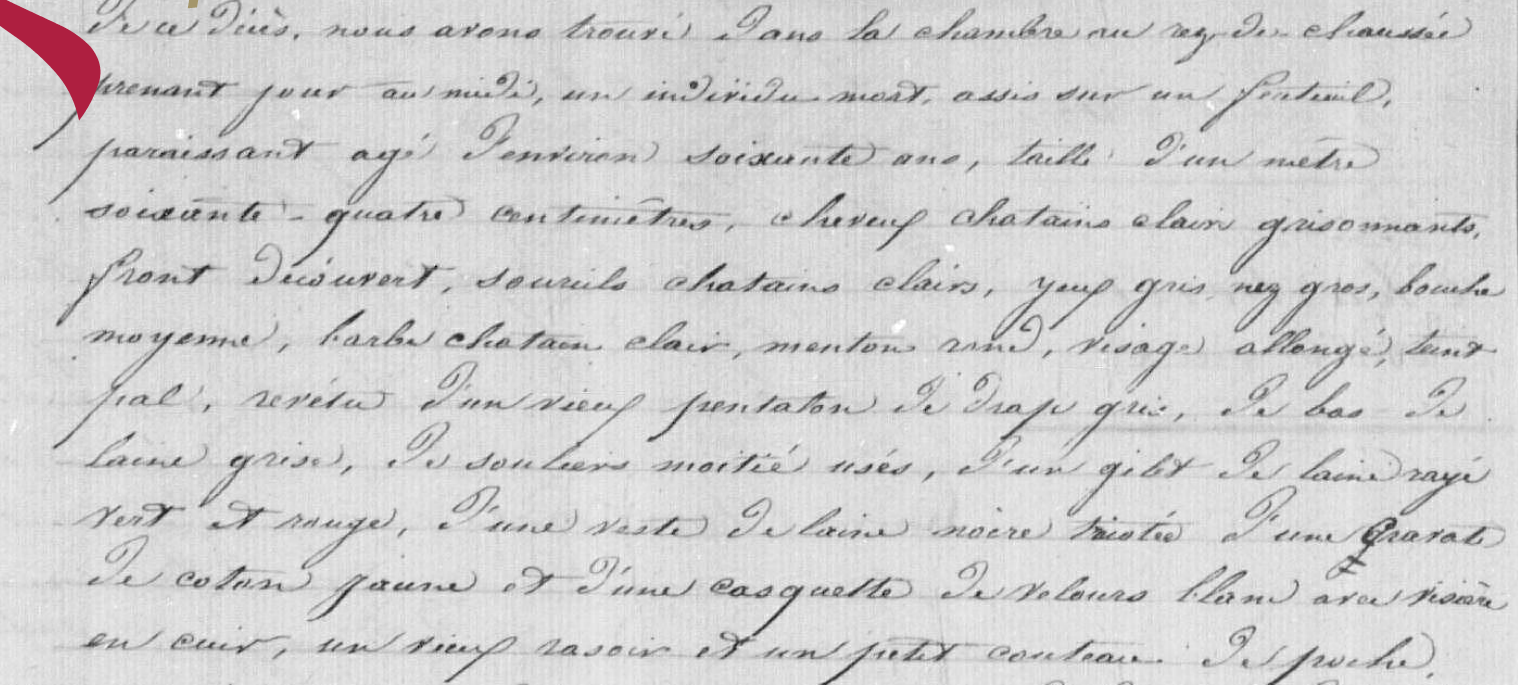 De ce décès, nous avons trouvé dans la chambre au rez-de-chaussée
prenant jour au midi, un individu mort, assis sur un fauteuil,
paraissant agé d'environ soixante ans, taille d'un mètre
soixante-quatre centimètres, cheveux chatains clairs grisonnants,
front découvert, sourcils chatains clairs, yeux gris, nez gros, bouche
moyenne, barbe chatain clair, menton rond, visage allongé, teint
pale, revétu d'un vieux pentalon de drap gris, de bas de
laine grise, de souliers moitié usés, d'un gilet de laine rayé
vert et rouge, d'une veste de laine noire tricotée d'une cravate
de coton jaune et d'une casquette de velours blanc avec visière
en cuir, un vieux rasoir et un petit couteau de poche,